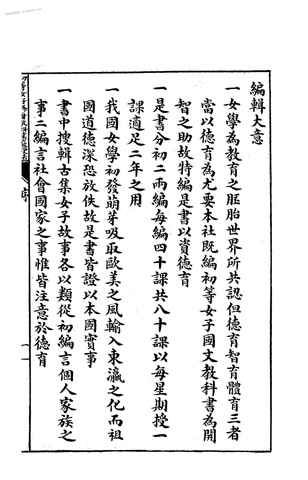 編輯大意
一女學為教育之胚胎世界所共認但德育智育體育三者
當以德育為尤要本社既編初等女子國文教科書為開
智之助故特編是書以資德育
一是書分初二兩編每編四十課共八十課以每星期授一
課適足二年之用
一我國女學初發萌芽吸取歐美之風輸入東瀛之化而祖
國道德深恐放佚故是書皆證以本國實事
一書中搜輯古集女子故事各以類從初編言個人家族之
事二編言社會國家之事惟皆注意於德育